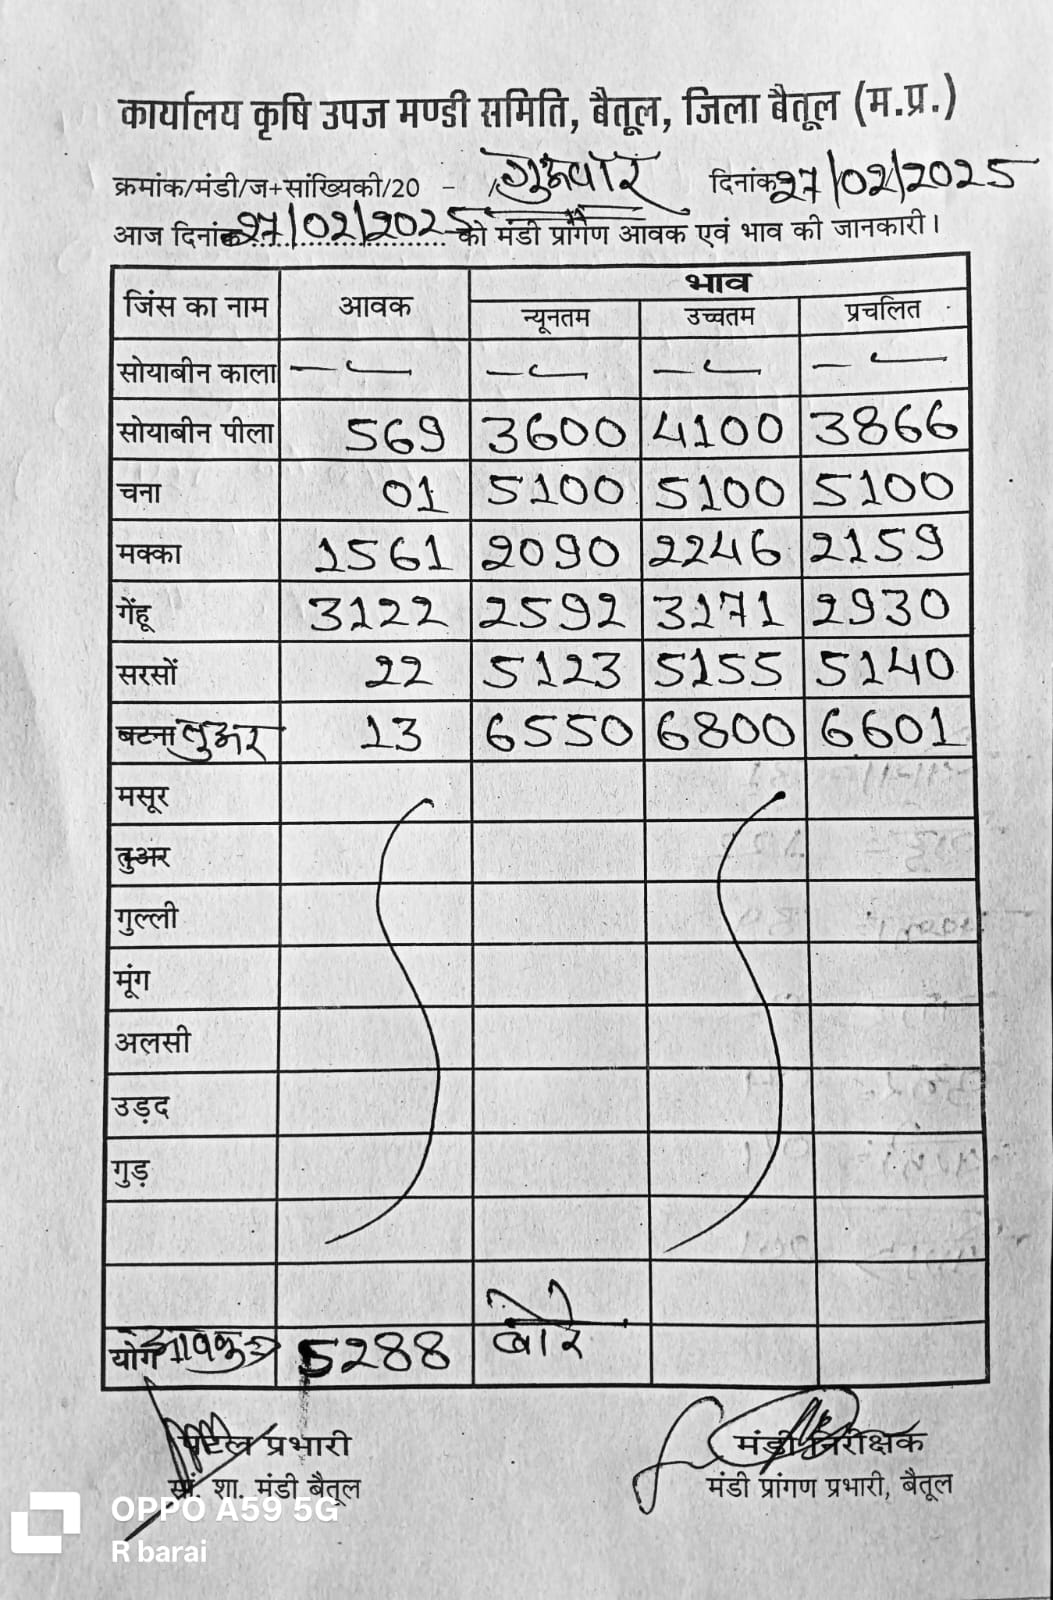 कार्यालय कृषि उपज मण्डी समिति, बैतूल, जिला बैतूल (म.प्र.)
क्रमांक/मंडी/ज+सांख्यिकी/20 - / गुरूवार दिनांक 27/02/2025
आज दिनांक 27/02/2025 को मंडी प्रांगण आवक एवं भाव की जानकारी।
जिंस का नाम आवक भाव
न्यूनतम उच्चतम प्रचलित
सोयाबीन काला — — — —
सोयाबीन पीला 569 3600 4100 3866
चना 01 5100 5100 5100
मक्का 1561 2090 2246 2159
गेंहू 3122 2592 3171 2930
सरसों 22 5123 5155 5140
बटना तुअर 13 6550 6800 6601
मसूर
तुअर
गुल्ली
मूंग
अलसी
उड़द
गुड़
योग आवक 5288 बोरे
प्रभारी मंडी निरीक्षक
सां. शा. मंडी बैतूल मंडी प्रांगण प्रभारी, बैतूल
OPPO A59 5G
R barai